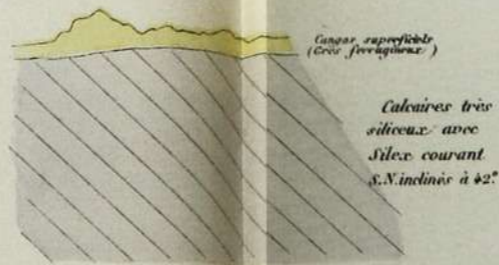 Cangas superficiels
(Grès ferrugineux)
Calcaires très
siliceux avec
Silex courant
S.N. inclinés à 42°